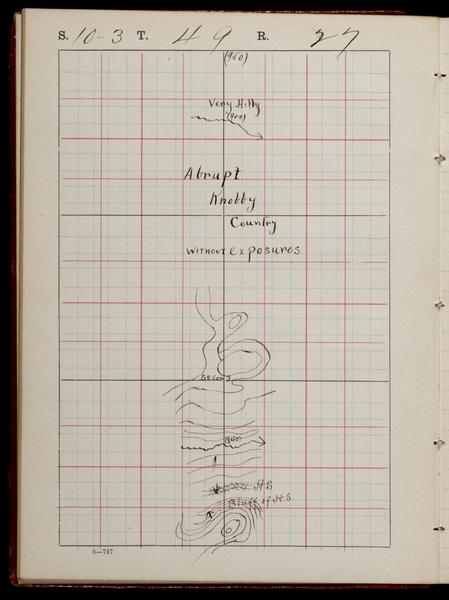 S. 10-3 T. 49 R. 27
(950)
Very Hilly
(900)
Abrupt
Knobby
Country
WITHOUT exposures
(950)
H S
Bluff of H.S
6—747